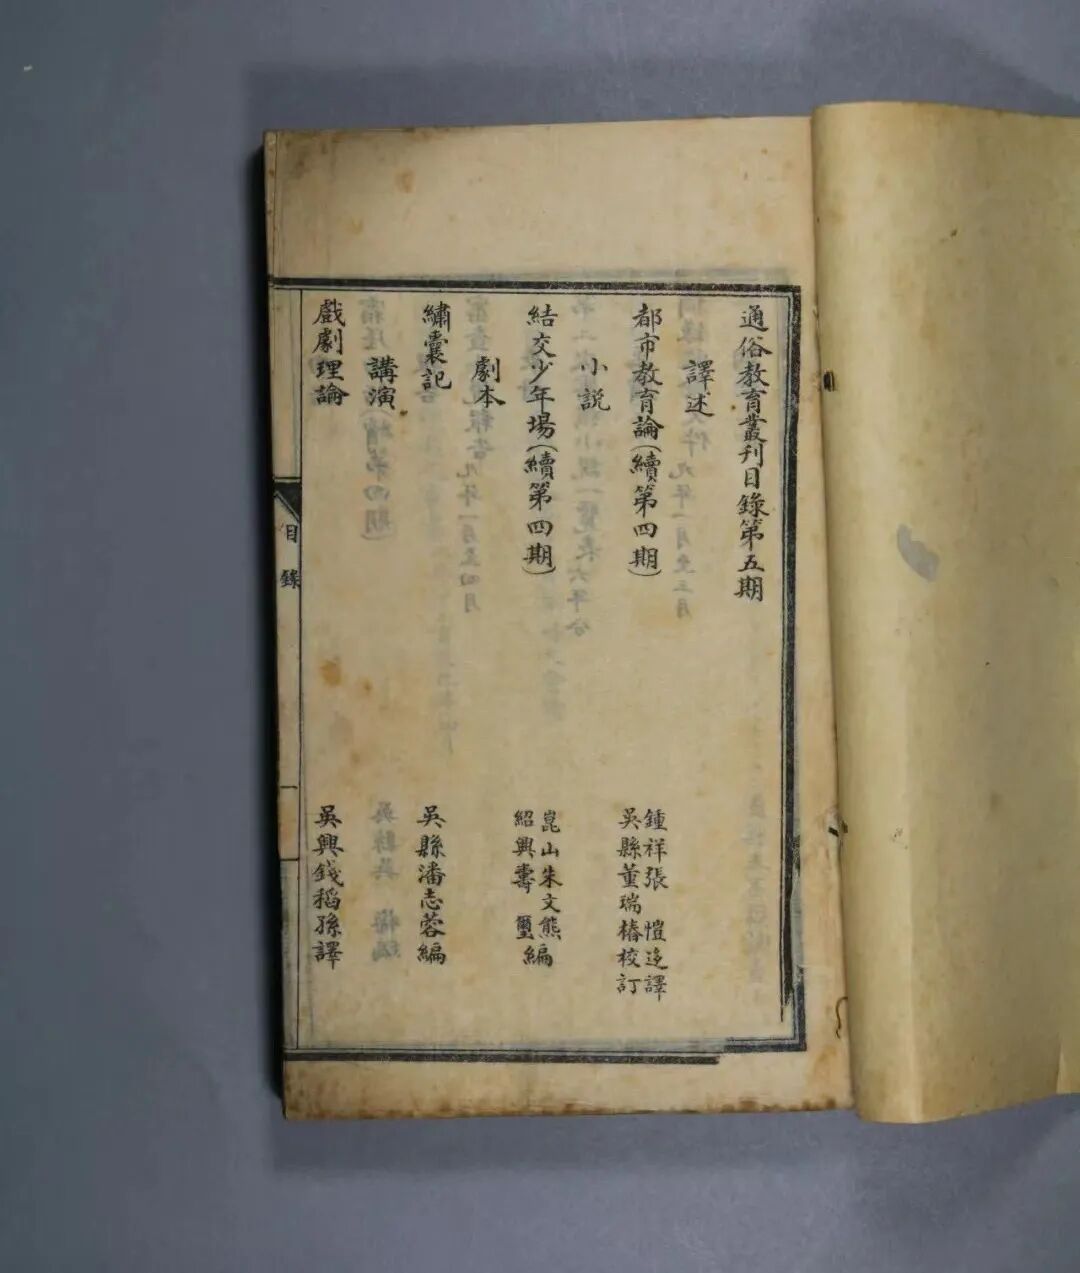 通俗教育叢刊目錄第五期
譯述
都市教育論(續第四期)
鍾祥張 愷迻譯
吳縣董瑞椿校訂
小說
結交少年場(續第四期)
崑山朱文熊
紹興壽 璽編
劇本
繡囊記
吳縣潘志蓉編
講演
戲劇理論
吳興錢稻孫譯
目錄
一